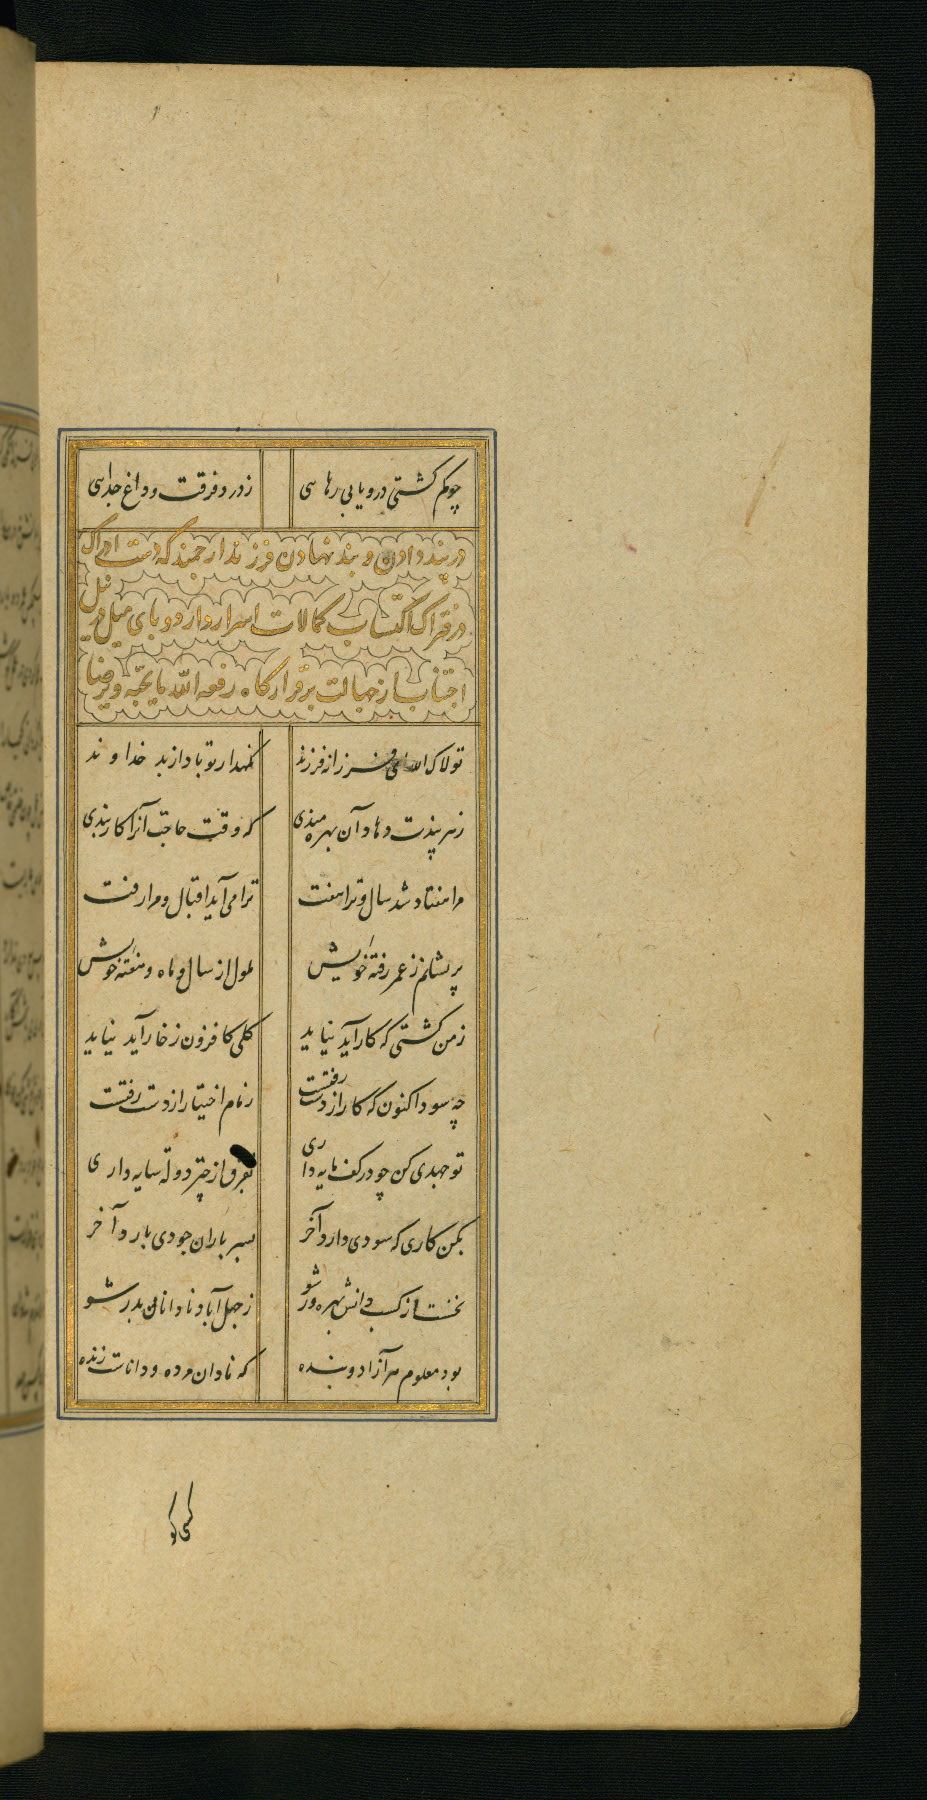 چو گم گشتی درو یابی رهایی ز درد فرقت و داغ جدایی
در پند دادن و بند نهادن فرزند ارجمند که دست ادراک
در فتراک اکتساب کمالات استوار دارد و پای میل در نیل
اجتناب از جهالت برقرار گاه رفعه الله بما یحبه و یرضا
تولاک الله ای فرزانه فرزند نگهدار تو باد از بد خداوند
ز هر پندت دهاد آن بهره‌مندی که وقت حاجت آنرا کار بندی
مرا هفتاد شد سال و ترا هفت ترا می‌آید اقبال و مرا رفت
پریشانم ز عمر رفته خویش ملول از سال و ماه و هفته خویش
ز من کشتی که کار آید نیاید گلی کافزون ز خار آید نیاید
چه سود اکنون که کار از دست رفتست زمام اختیار از دست رفتست
تو جهدی کن چو در کف مایه داری بفرق از چتر دولت سایه داری
بکن کاری که سودی دارد آخر بسر باران جودی بارد آخر
نخست از کسب دانش بهره‌ور شو ز جهل‌آباد نادانان بدر شو
بود معلوم هر آزاد و بنده که نادان مرده و داناست زنده